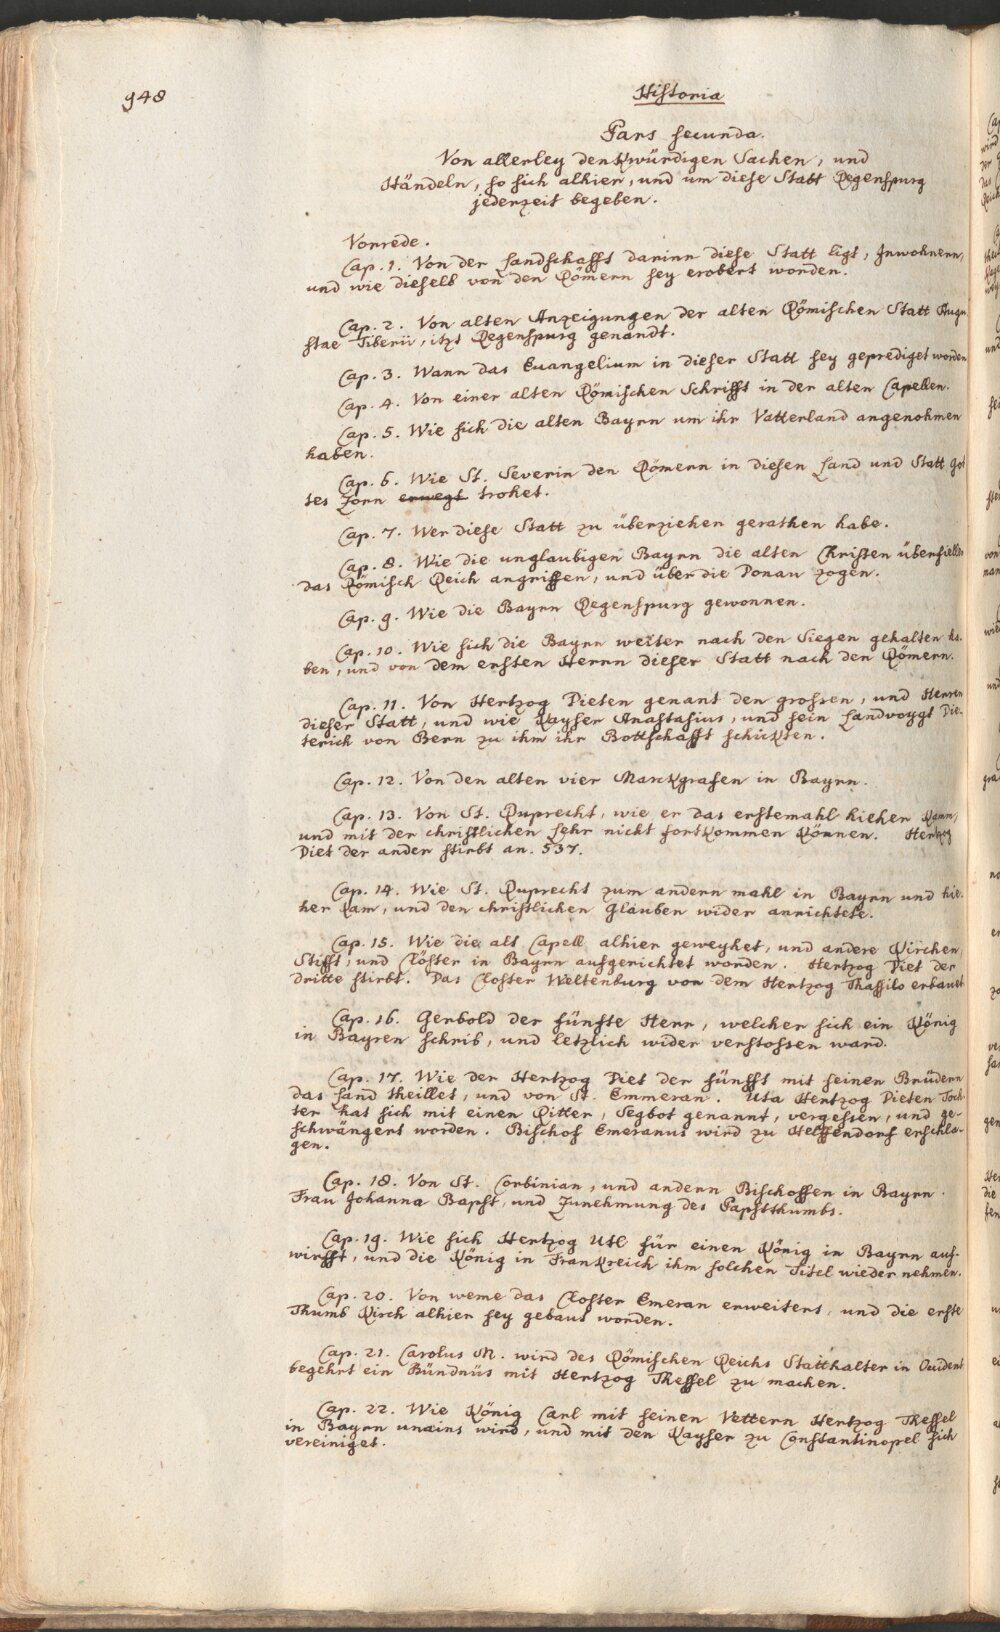 948
Historia
Pars secunda.
Von allerley denkwürdigen Sachen, und
Händeln, so sich alhier, und um diese Statt Regenspurg
jederzeit begeben.
Vorrede.
Cap. 1. Von der Landschafft darinn diese Statt ligt, Inwohnern,
und wie dieselb von den Römern sey erobert worden.
Cap. 2. Von alten Anzeigungen der alten Römischen Statt Augu
stae Tiberii, itzt Regenspurg genandt.
Cap. 3. Wann das Euangelium in dieser Statt sey geprediget worden
Cap. 4. Von einer alten Römischen Schrifft in der alten Capellen.
Cap. 5. Wie sich die alten Bayrn um ihr Vatterland angenohmen
haben.
Cap. 6. Wie St. Severin den Römern in diesen Land und Statt Got
tes Zorn erwegt trohet.
Cap. 7. Wer diese Statt zu überziehen gerathen habe.
Cap. 8. Wie die unglaubigen Bayrn die alten Christen überfiellen
das Römisch Reich angriffen, und über die Donau zogen.
Cap. 9. Wie die Bayrn Regenspurg gewonnen.
Cap. 10. Wie sich die Bayrn weiter nach den Siegen gehalten ha-
ben, und von dem ersten Herrn dieser Statt nach den Römern.
Cap. 11. Von Hertzog Dieten genant den grossen, und Herren
dieser Statt, und wie Kayser Anastasius, und sein Landvoygt Die-
terich von Bern zu ihm ihr Bottschafft schickten.
Cap. 12. Von den alten vier Marckgrafen in Bayrn.
Cap. 13. Von St. Ruprecht, wie er das erstemahl hieher kamm,
und mit der christlichen Lehr nicht fortkommen können. Hertzog
Diet der ander stirbt an. 537.
Cap. 14. Wie St. Ruprecht zum andern mahl in Bayrn und hie-
her kam, und den christlichen Glauben wider anrichtete.
Cap. 15. Wie die alt Capell alhier geweyhet, und andere Kirchen,
Stifft, und Clöster in Bayrn aufgerichtet worden. Hertzog Diet der
dritte stirbt. Das Closter Weltenburg von dem Hertzog Thassilo erbauet
Cap. 16. Gerbold der fünfte Herr, welcher sich ein König
in Bayren schrib, und letzlich wider verstossen ward.
Cap. 17. Wie der Hertzog Diet der fünfft mit seinen Brüdern
das Land theillet, und von St. Emmeran. Uta Hertzog Dieten Toch-
ter hat sich mit einen Ritter, Segbot genannt, vergessen, und ge-
schwängert worden. Bischof Emeranus wird zu Helffendorf erschla-
gen.
Cap. 18. Von St. Corbinian, und andern Bischoffen in Bayrn.
Frau Johanna Bapst, und Zunehmung des Papstthumbs.
Cap. 19. Wie sich Hertzog Utl für einen König in Bayrn auf-
wirfft, und die König in Frankreich ihm solchen Titel wieder nehmen.
Cap. 20. Von weme das Closter Emeran erweitert, und die erste
Thumb Kirch alhier sey gebaut worden.
Cap. 21. Carolus M. wird des Römischen Reichs Statthalter in Occident
begehrt ein Bündnüs mit Hertzog Thessel zu machen.
Cap. 22. Wie König Carl mit seinen Vettern Hertzog Thessel
in Bayrn unains wird, und mit den Kayser zu Constantinopel sich
vereiniget.